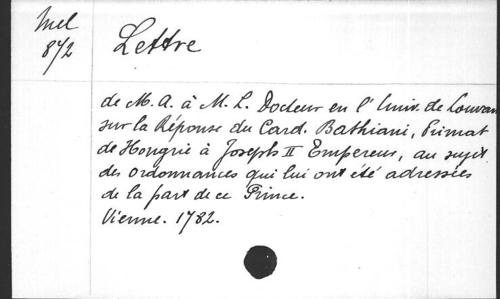 Mel
872
Lettre
de M. A. à M. L. Docteur en l'Univ. de Louvain
sur la Réponse du Card. Bathiani, Primat
de Hongrie à Joseph II Empereur, au sujet
des ordonnances qui lui ont été adressées
de la part de ce Prince.
Vienne. 1782.